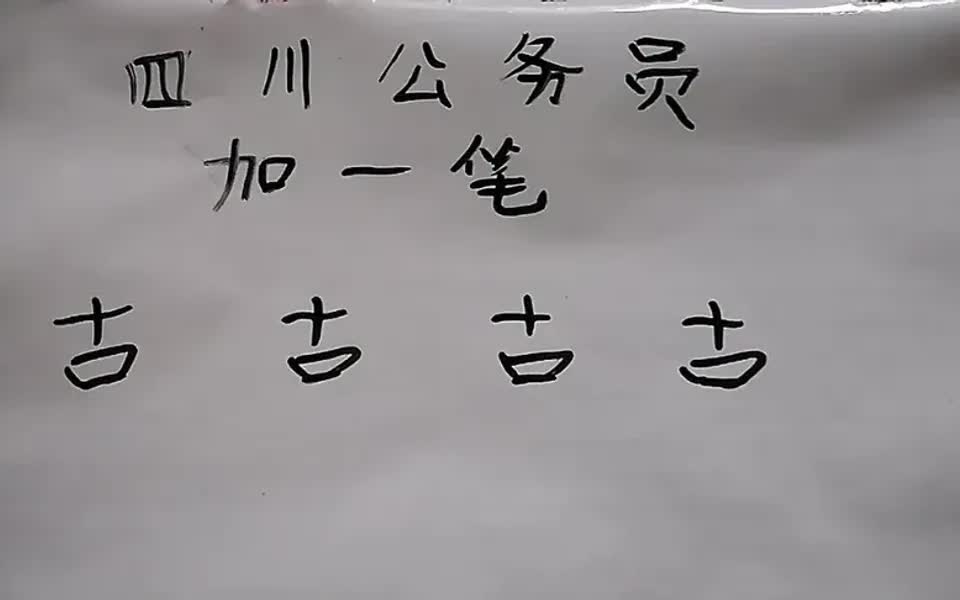 四川公务员
加一笔
古 古 古 古